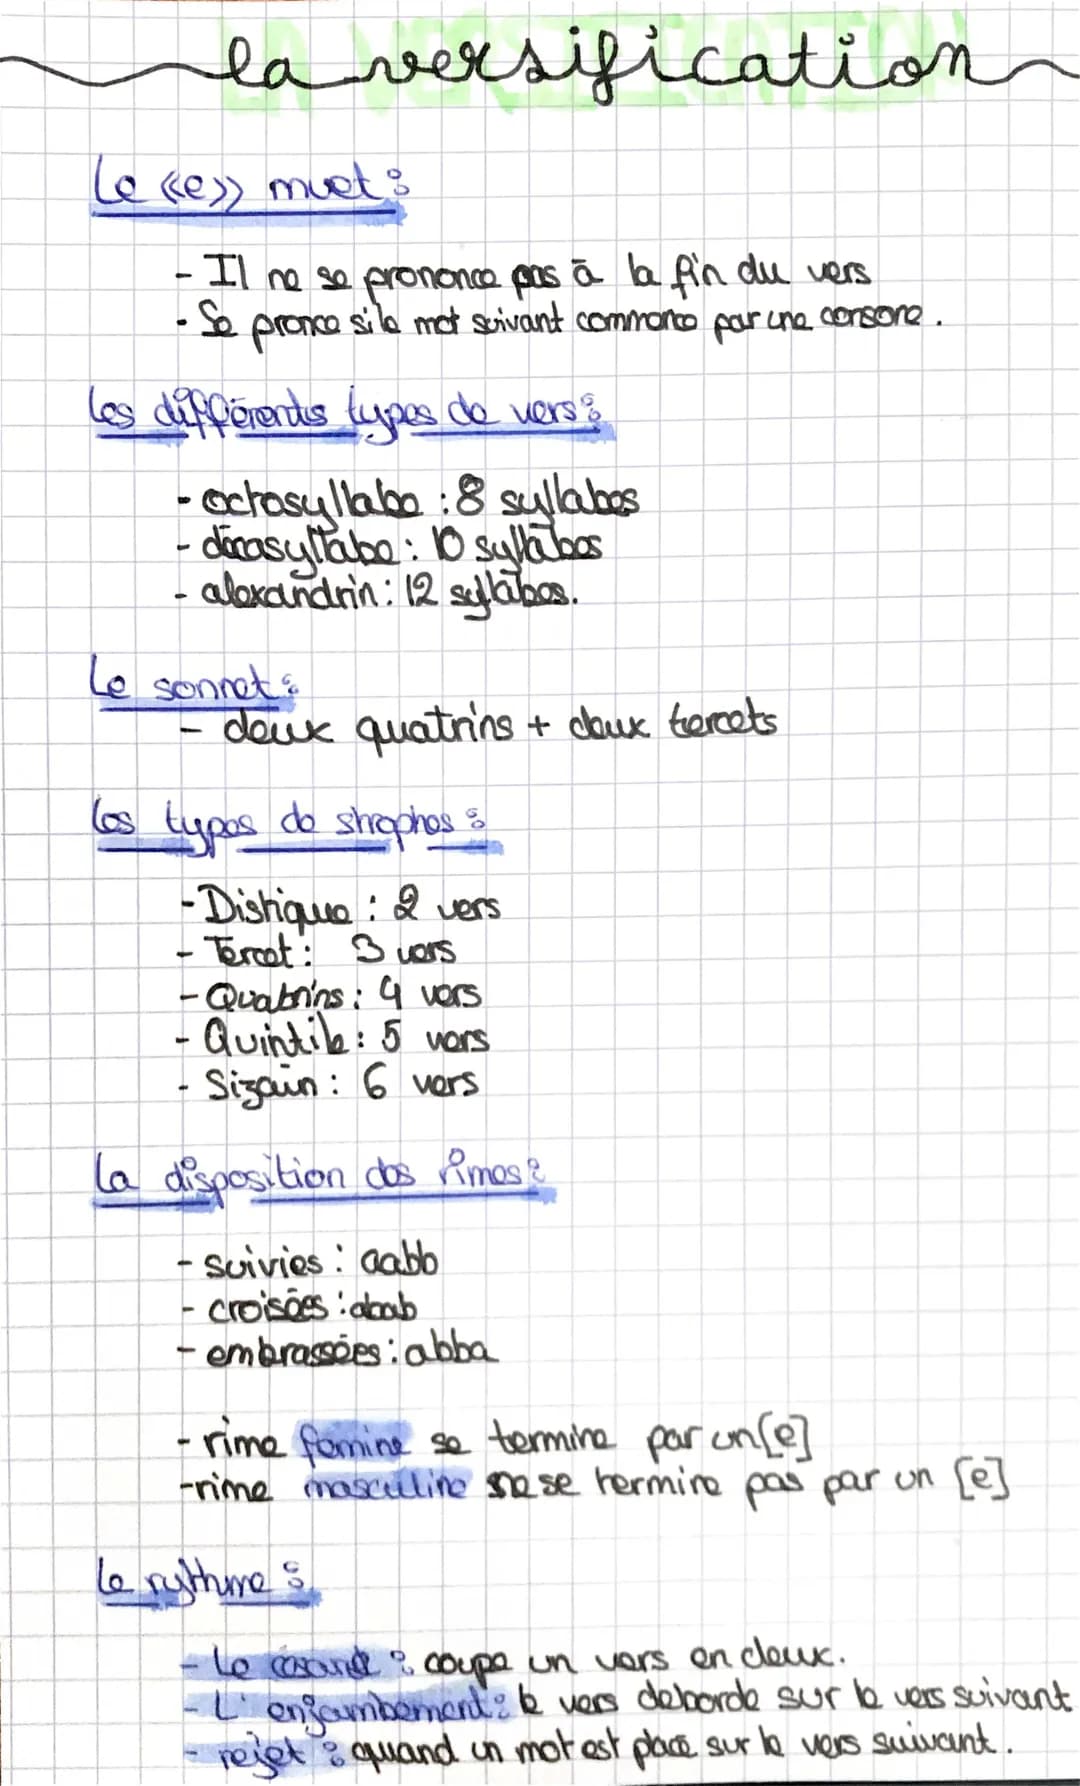 la versification
Le «e» muet :
- Il ne se prononce pas à la fin du vers
- Se pronce si le mot suivant commence par une consone.
Les différents types de vers :
- octosyllabe : 8 syllabes
- décasyllabe : 10 syllabes
- alexandrin : 12 syllabes.
Le sonnet :
- deux quatrins + deux tercets
les types de strophes :
- Distique : 2 vers
- Tercet : 3 vers
- Quatrins : 4 vers
- Quintile : 5 vers
- Sizain : 6 vers
La disposition des rimes :
- suivies : aabb
- croisées : abab
- embrassées : abba
- rime femine se termine par un [e]
- rime masculline ne se termine pas par un [e]
Le rythme :
- Le : coupe un vers en deux.
- L'enjambement : le vers deborde sur le vers suivant
- rejet : quand un mot est placé sur le vers suivant.